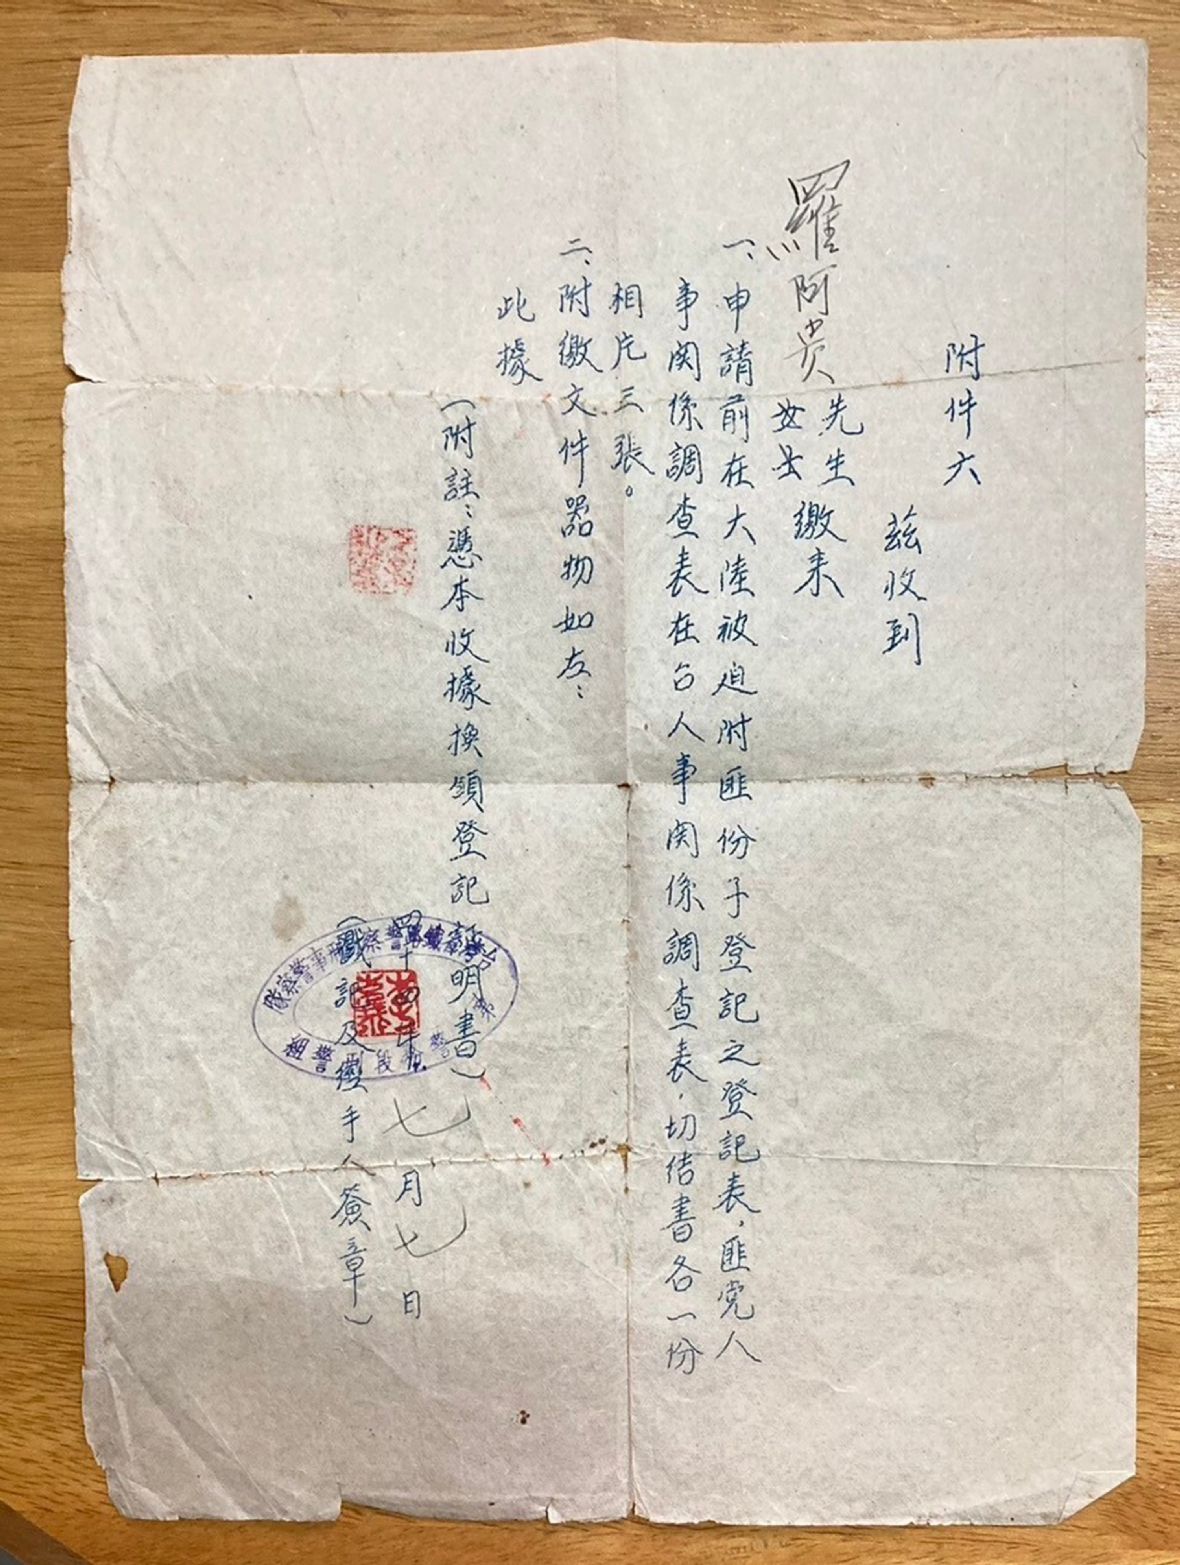 附件六
茲收到
羅阿貴先生女士繳來
一、申請前在大陸被迫附匪份子登記之登記表，匪党人
事関係調查表在台人事関係調查表，切结書各一份
相片三張。
二、附繳文件器物如左：
此據
（附註：憑本收據換領登記証明書）
四十四年七月七日
（戳記及經手人簽章）